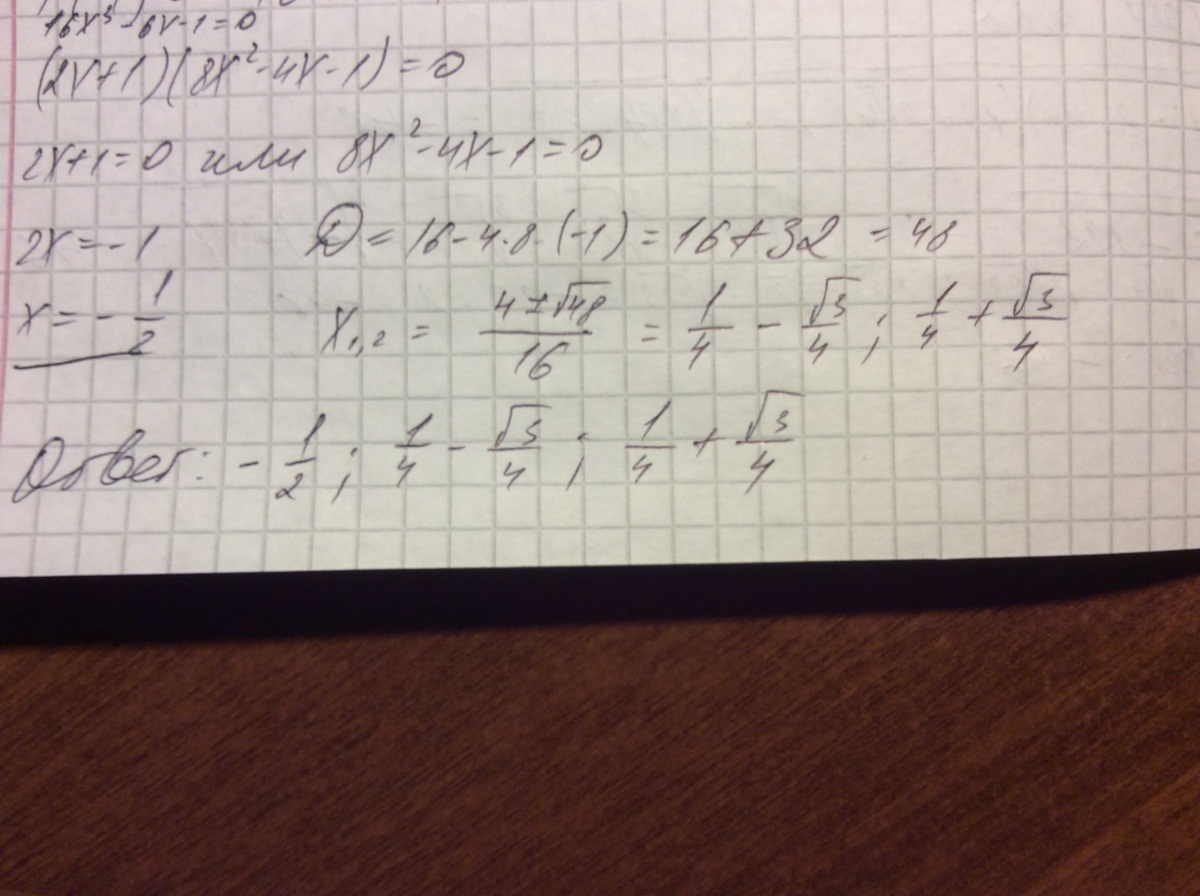 16x³-6x-1=0
(2x+1)(8x²-4x-1)=0
2x+1=0 или 8x²-4x-1=0
2x=-1 D=16-4·8·(-1)=16+32=48
x=-1/2 x₁,₂=(4±√48)/16=1/4-√3/4; 1/4+√3/4
Ответ: -1/2; 1/4-√3/4; 1/4+√3/4